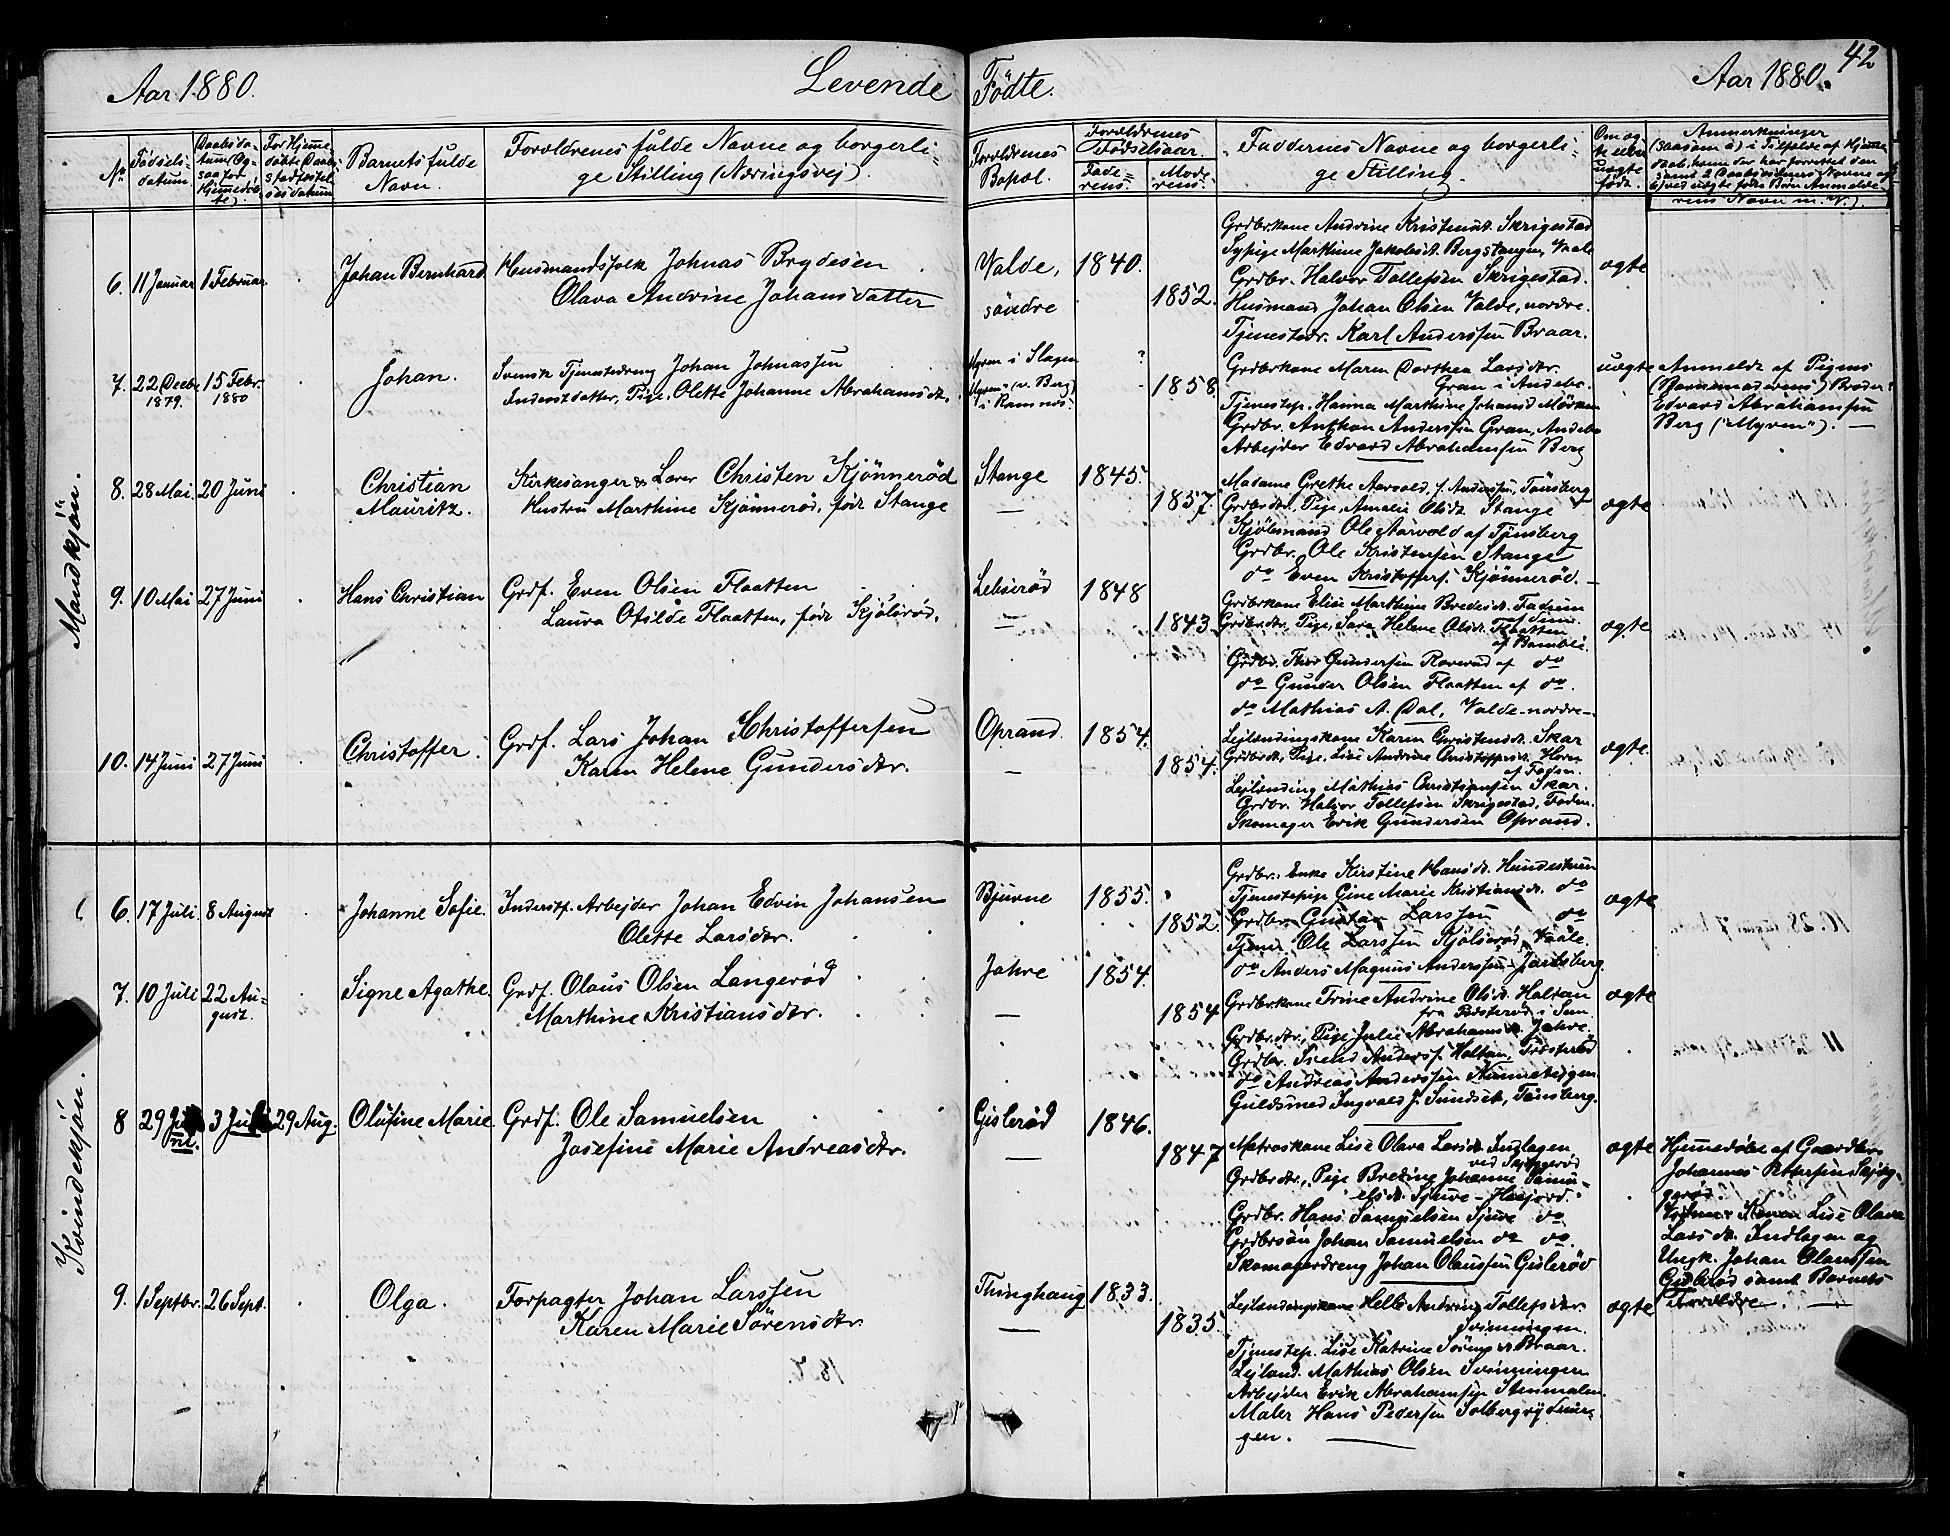 42
Aar 1880. Levende Födte. Aar 1880.
No
Födsels-
datum
Daabsda-
tum (Og-
saa for
Hjemmedöb-
te).
For Hjemme-
döbte Daabs
Stadfæstel-
sesdatum
Barnets fulde
Navn.
Forældrenes fulde Navne og borgerli-
ge Stilling (Næringsvej).
Forældrenes
Bopæl.
Forældrenes
Födselsaar.
Fade-
rens.
Mode-
rens.
Faddernes Navne og borgerli-
ge Stilling.
Om æg-
te eller
uægte
født.
Anmerkninger
Mandkjön.
6. 11 Januar 1 Februar. Johan Bernhard Husmandsfolk Johnas Brydesen
Olava Andrine Johansdatter
Valde,
söndre
1840.
1852.
Grdbr.kone Andrine Kristensdt. Skrigestad
Sypige Marthine Jakobsdt. Bergstangen, Vaale
Grdbr. Halvor Tollefsen Skrigestad.
Husmand Johan Olsen Valde, nordre.
Tjenestedr. Karl Anderssen Braar.
ægte
7. 22 Decbr 1879. 15 Febr. 1880 Johan. Svensk Tjenestedreng Johan Johnassen
Inderstdatter, Pige, Olette Johanne Abrahamsdtr.
Myren i Slagen
"Myren" (v. Berg)
i Ramnes.
?
1858
Grdbrkone Maren Dorthea Larsdtr.
Gran i Andebo.
Tjenestep. Hanna Marthine Johansd Mörken
Grdbr. Anthon Anderssen Gran, Andebo
Arbejder Edvard Abrahamsen Berg
uægte
Anmeldt af Pigens
(Barnemoderens) Broder:
Edvard Abrahamsen
Berg ("Myren"). —
8. 28 Mai. 20 Juni Christian
Mauritz.
Kirkesanger & Lærer Christen Kjönneröd
Hustru Marthine Kjönneröd, född Stange
Stange
—
1845.
1857.
Madame Grethe Aarvold, f. Anderssen, Tönsberg
Grdbr.dt. Pige, Amalie Olsdt. Stange
Kjöbmand Ole Aarvold af Tönsberg
Grdbr. Ole Kristensen Stange
do Even Kristoffers. Kjönneröd. —
ægte
9. 10 Mai 27 Juni Hans Christian Grdf. Even Olsen Flaatten
Laura Otilde Flaatten, föd Kjölsröd.
Lebseröd
—
1848
1843
Grdbrkone Elise Marthine Bredesdt. Fadum
i Sem.
Grdbr.dtr. Pige, Sara Helene Olsdt. Flaatten
af Bamble.
Grdbr. Thor Gundersen Rörerud af do
do Gunder Olsen Flaatten af do.
do Mathias A. Dal, Valde-nordre-.
ægte
10. 14 Juni 27 Juni Christoffer. Grdf. Lars Johan Christoffersen
Karen Helene Gundersdtr.
Oprand.
—
1854.
1854.
Lejlændingskone Karen Christensdt. Skar
Grdbrdt, Pige, Lise Andrine Christoffersdt. Horn
af Foden.
Lejlænding Mathias Christiansen Skar.
Grdbr. Halvor Tollefsen Skrigestad, Foden.
Skomager Erik Gundersen Oprand.
ægte.
Kvindekjön.
6. 17 Juli. 8 August Johanne Sofie. Inderstf. Arbejder Johan Edvin Johansen
Olette Larsdtr.
Bjuvne
1855.
1852.
Grdbr. Enke Kirstine Hansdt. Hundestuen
Tjenestepige Gine Marie Kristiansdt. do
Grdbr. Gustav Larssen do
Tjener Ole Larssen Kjölsröd, Vaale.
do Anders Magnus Anderssen-Jarlsberg.
ægte
7. 10 Juli 22 Au-
gust.
Signe Agathe. Grdf. Olaus Olsen Langeröd
Marthine Kristiansdtr.
Jahre
—
1854.
1854
Grdbr.kone Trine Andrine Olsdt. Haltan
fra i Sem
Grdbr.dtr., Pige Julie Abrahamsdt. Jahre.
Grdbr. Svend Anders. Holtan,
do Andreas Anderssen
Guldsmed Ingvald J. Sundset, Tönsberg.
ægte
8 29 3 29 Aug. Olufine Marie Grdf. Ole Samuelsen
Josefine Marie Andreasdtr.
Gisleröd
—
1846.
1847
Matroskone Lise Olava Larsdt. Indlagen
ved
Grdbr.dtr., Pige Bredine Johanne Samu-
elsdt. Sjuve -
Grdbr. Hans Samuelsen Sjuve do.
Grdbrsön Johan Samuelsen do do.
Skomagerdreng Johan Olaussen Gisleröd
ægte
Hjemmedöbt af Gaardbr.
Johannes Pettersen
Kone Lise Olava
Larsdt. Indlagen og
Ungk. Johan Olaussen
Gisleröd samt Barnets
Forældre. —
9. 1 Septbr. 26 Sept. Olga. Forpagter Johan Larssen
Karen Marie Sörensdtr.
Thinghaug
—
1833.
1835.
Lejlændingskone Helle Andrine Tollefsdtr.
Svinningen.
Tjenestep. Lise Katrine Sörensdt. Braar.
Lejlænd. Mathias Olsen Svinningen
Arbejder Erik Abrahamsen
Maler Hans Pedersen
gen. —
ægte